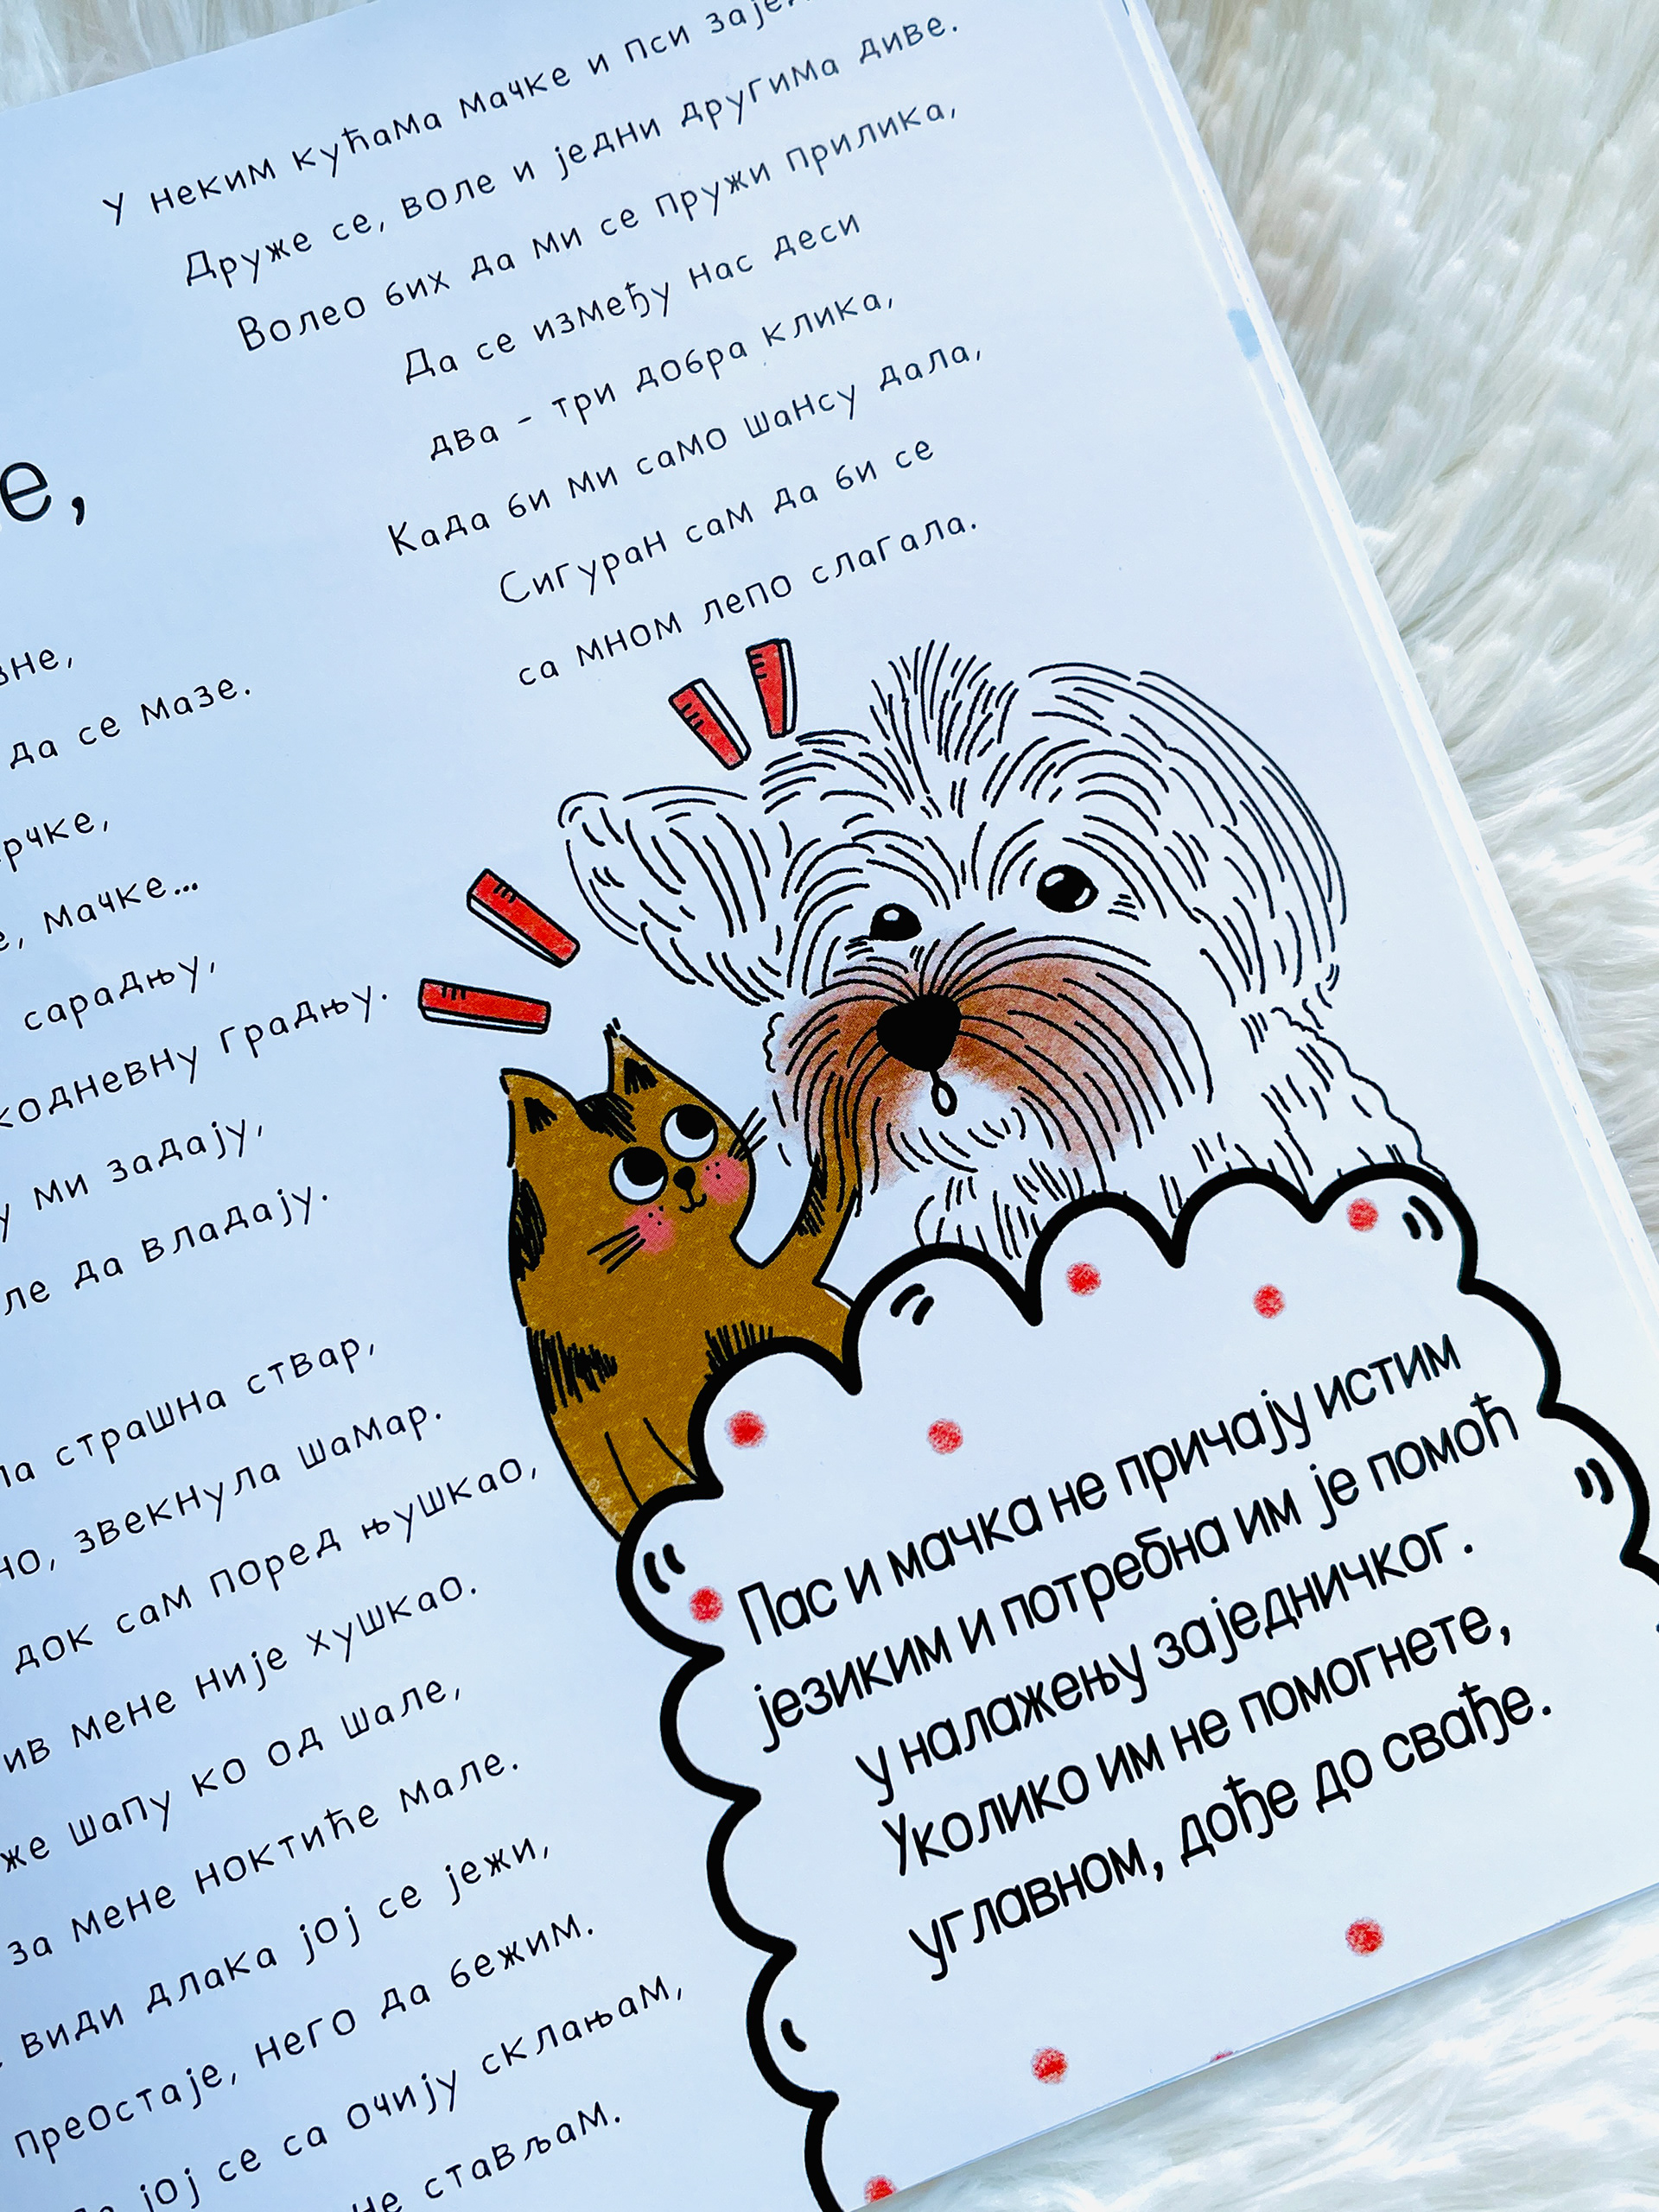 е,
да се мазе.
мачке...
сарадњу,
градњу.
ми задају,
да владају.
страшна ствар,
звекнула шамар.
док сам поред њушкао,
мене није хушкао.
шапу ко од шале,
за мене ноктиће мале.
види длака јој се јежи,
преостаје, него да бежим.
јој се са очију склањам,
не стављам.
У неким кућама мачке и пси
Друже се, воле и једни другима диве.
Волео бих да ми се пружи прилика,
Да се између нас деси
два - три добра клика,
Када би ми само шансу дала,
Сигуран сам да би се
са мном лепо слагала.
Пас и мачка не причају истим
језиким и потребна им је помоћ
у налажењу заједничког.
Уколико им не помогнете,
углавном, дође до свађе.